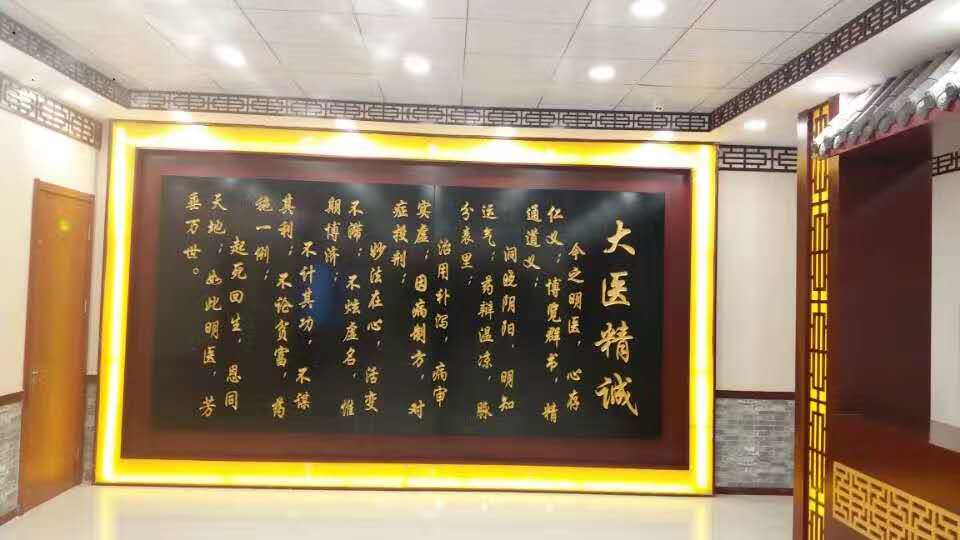 大医精诚
今之明医，心存
仁义；博览群书，精
通道义；
洞晓阴阳，明知
运气；药辩温凉，脉
分表里；
治用补泻，病审
实虚；因病制方，对
症投剂；
妙法在心，活变
不滞；不炫虚名，惟
期博济；
不计其功，不谋
其利；不论贫富，药
施一例；
起死回生，恩同
天地；如此明医，芳
垂万世。